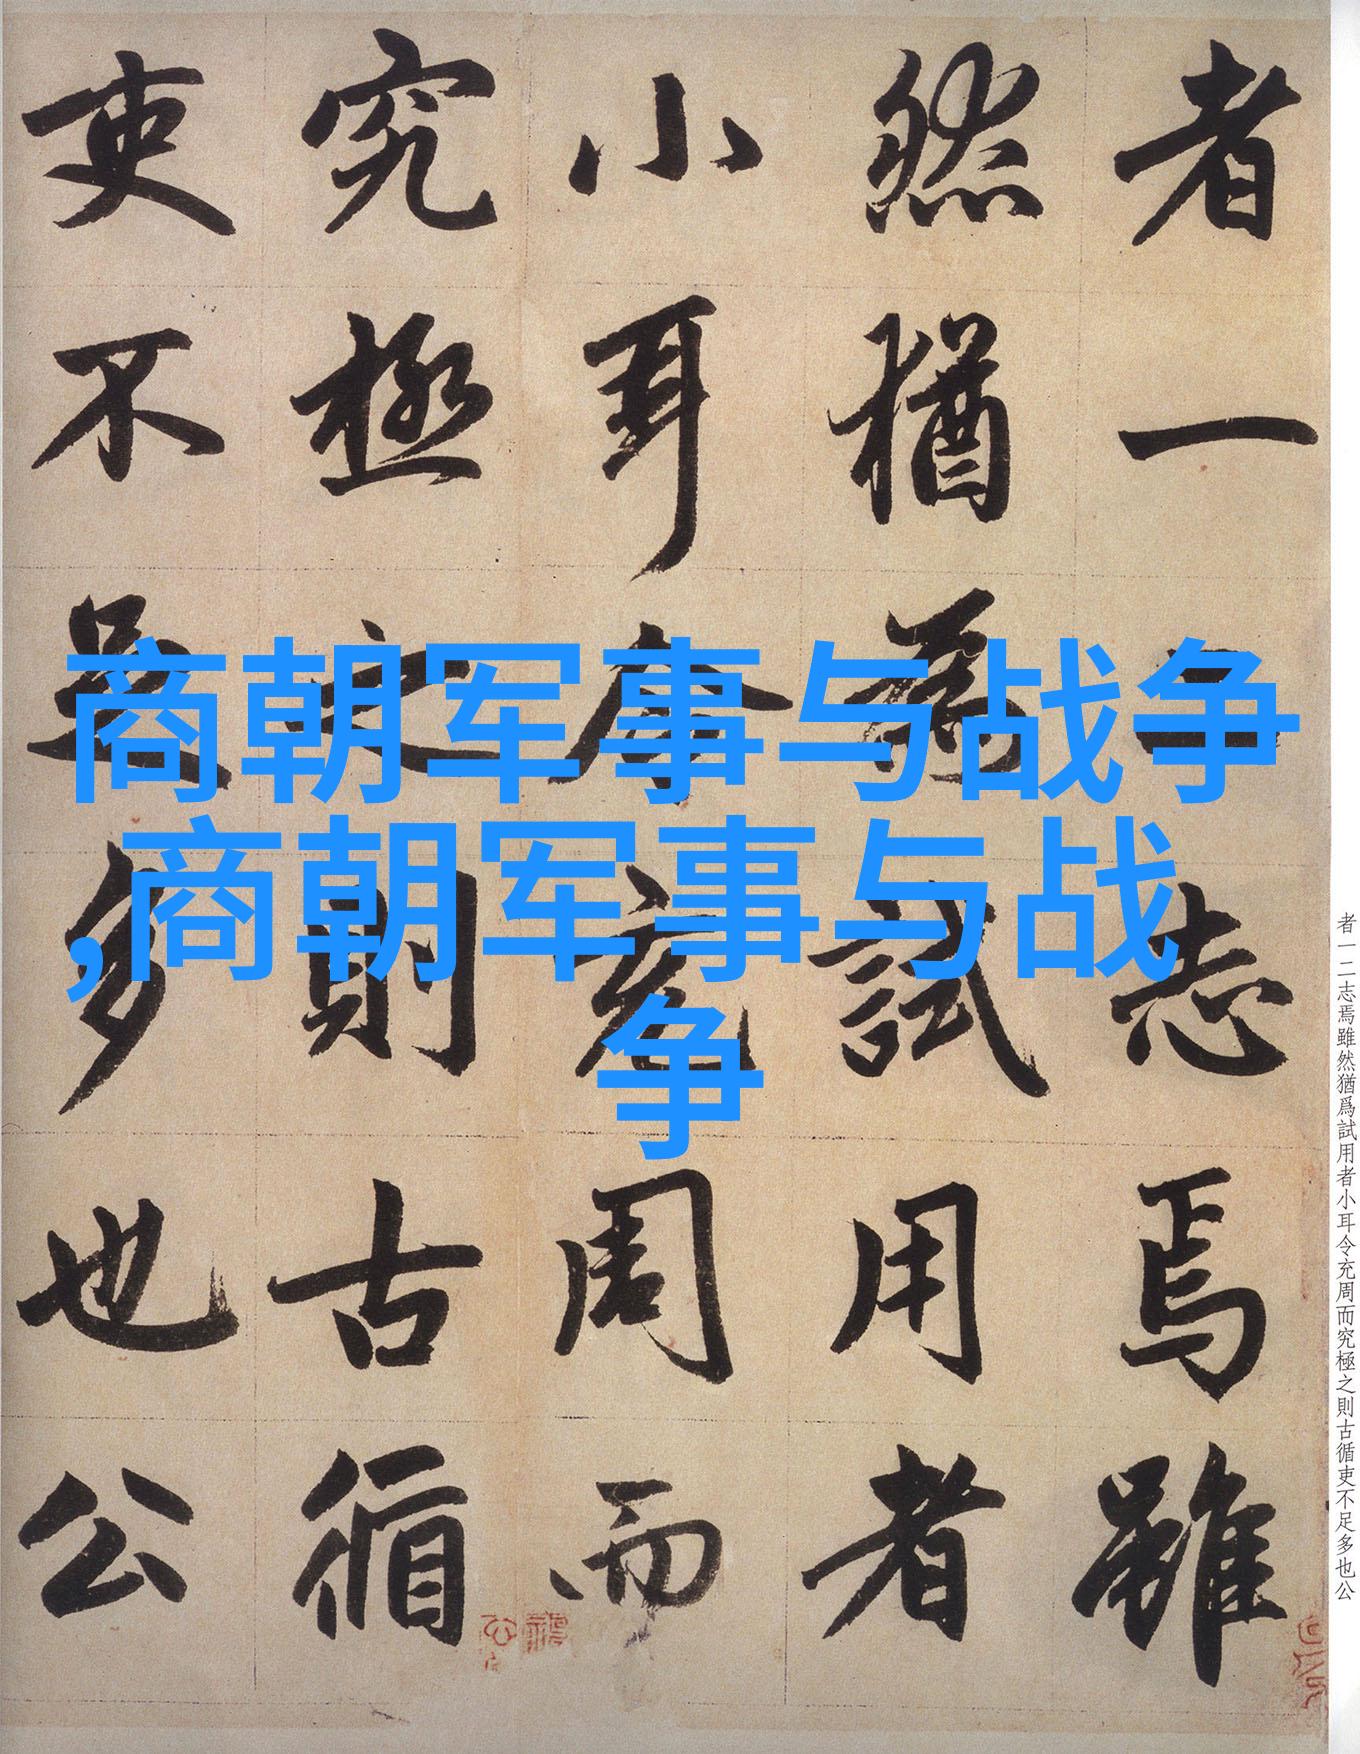 商朝军事与战争
,商朝军事与战
争
者一二志焉雖
然猶為試用者
小耳令充周而
究極之則古循
吏不足多也公
者一二志焉雖然猶爲試用者小耳令充周而究極之則古循吏不足多也公